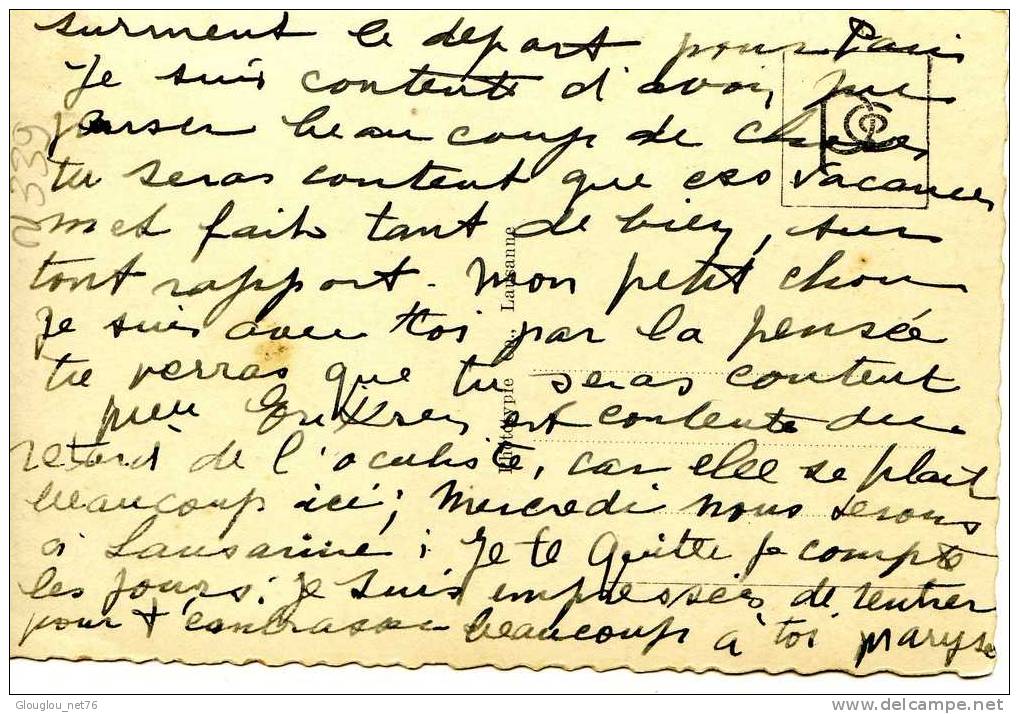 surment le depart pour Paris
Je suis contente d'avoir pue
penser beaucoup de choses,
tu seras content que ces vacances
met fait tant de bien, sur
tout rapport. Mon petit chou
Je suis avec toi par la pensée
tu verras que tu seras content
est contente du
retard de l'oculiste, car elle se plait
beaucoup ici; Mercredi nous serons
a Lausanne; Je te quitte je compte
les jours; Je suis empressées de rentrer
pour t'embrasser beaucoup à toi Maryse
2339
Phototypie Co., Lausanne
Glouglou_net76
delcampe.net